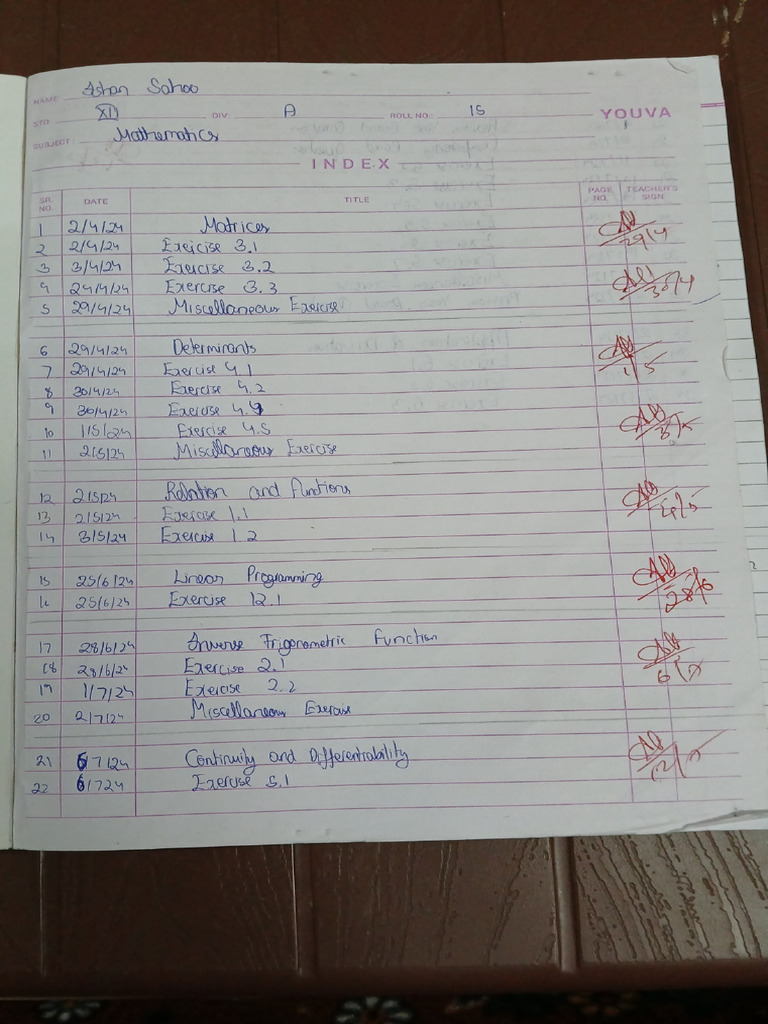 NAME: Ishan Sahoo
STD.: XII DIV. A ROLL NO.: 15 YOUVA
SUBJECT: Mathematics
INDEX
SR. NO. DATE TITLE PAGE NO. TEACHER'S SIGN
1 2/4/24 Matrices
2 2/4/24 Exercise 3.1 29/4
3 3/4/24 Exercise 3.2
4 24/4/24 Exercise 3.3 30/4
5 29/4/24 Miscellaneous Exercise
6 29/4/24 Determinants
7 29/4/24 Exercise 4.1 1/5
8 30/4/24 Exercise 4.2
9 30/4/24 Exercise 4.4
10 1/5/24 Exercise 4.5 3/5
11 2/5/24 Miscellaneous Exercise
12 2/5/24 Relation and functions
13 2/5/24 Exercise 1.1 4/5
14 3/5/24 Exercise 1.2
15 25/6/24 Linear Programming
16 25/6/24 Exercise 12.1 28/6
17 28/6/24 Inverse Trigonometric Function
18 28/6/24 Exercise 2.1 6/7
19 1/7/24 Exercise 2.2
20 2/7/24 Miscellaneous Exercise
21 6/7/24 Continuity and Differentiability
22 6/7/24 Exercise 5.1 12/7